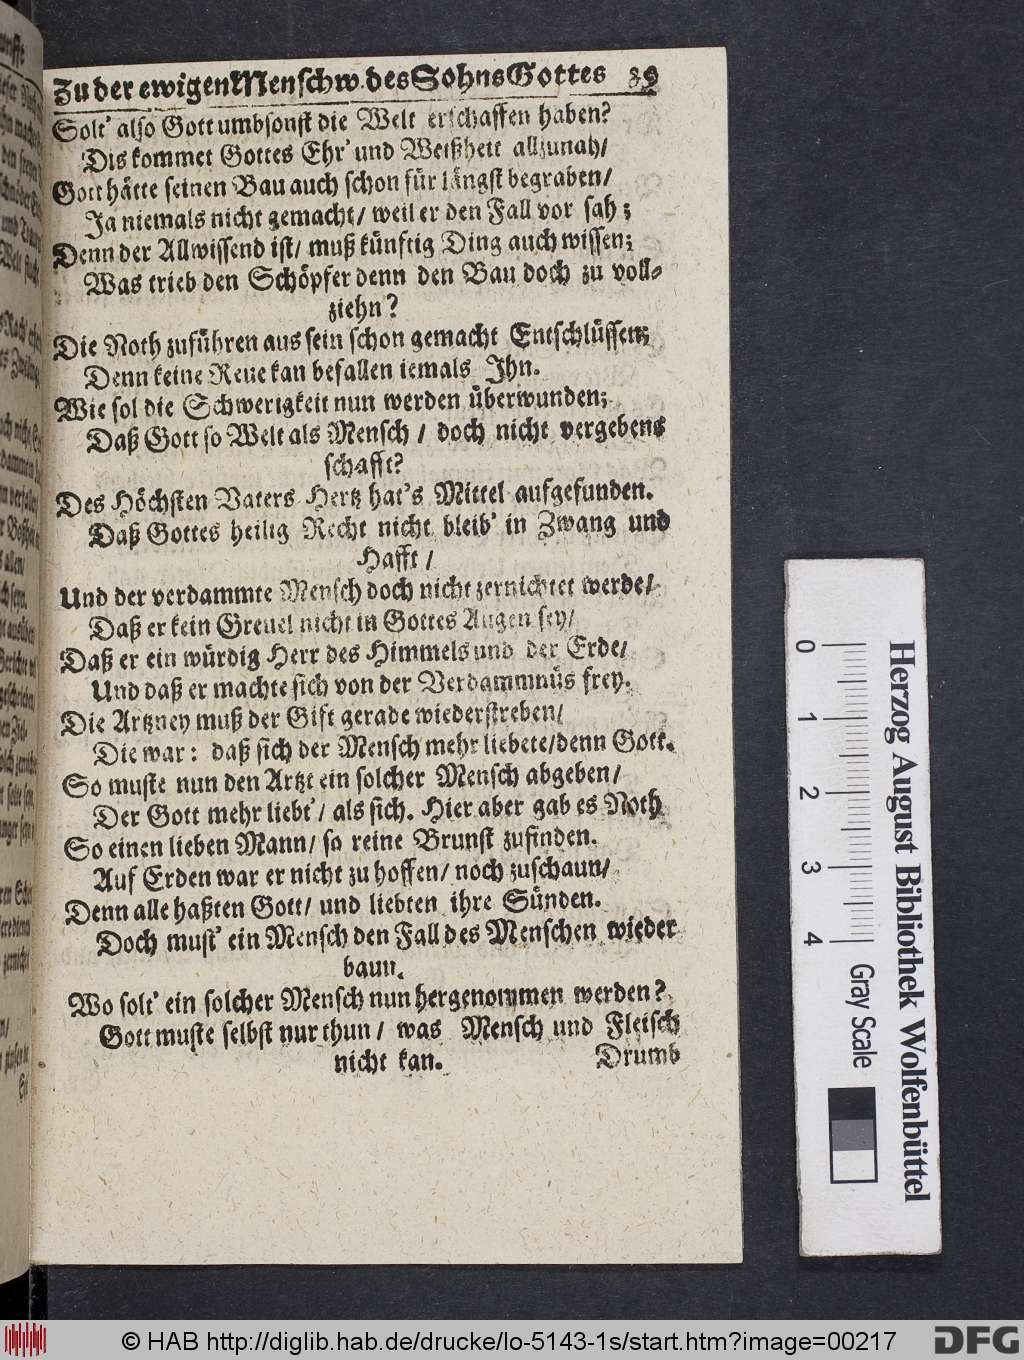 Zu der ewigen Menschw. des Sohns Gottes 39
Solt' also Gott umbsonst die Welt erschaffen haben?
Dis kommet Gottes Ehr' und Weißheit allzunah/
Gott hätte seinen Bau auch schon für längst begraben/
Ja niemals nicht gemacht/ weil er den Fall vor sah;
Denn der Allwissend ist/ muß künftig Ding auch wissen;
Was trieb den Schöpfer denn den Bau doch zu voll-
ziehn?
Die Noth zuführen aus sein schon gemacht Entschlüssen;
Denn keine Reue kan befallen iemals Ihn.
Wie sol die Schwerigkeit nun werden überwunden;
Daß Gott so Welt als Mensch / doch nicht vergebens
schafft?
Des Höchsten Vaters Hertz hat's Mittel aufgefunden.
Daß Gottes heilig Recht nicht bleib' in Zwang und
Hafft /
Und der verdammte Mensch doch nicht zernichtet werde/
Daß er kein Greuel nicht in Gottes Augen sey/
Daß er ein würdig Herr des Himmels und der Erde/
Und daß er machte sich von der Verdammnüs frey.
Die Artzney muß der Gift gerade wiederstreben/
Die war: daß sich der Mensch mehr liebete/denn Gott.
So muste nun den Artzt ein solcher Mensch abgeben/
Der Gott mehr liebt'/ als sich. Hier aber gab es Noth
So einen lieben Mann/ so reine Brunst zufinden.
Auf Erden war er nicht zu hoffen/ noch zuschaun/
Denn alle haßten Gott/ und liebten ihre Sünden.
Doch must' ein Mensch den Fall des Menschen wieder
baun.
Wo solt' ein solcher Mensch nun hergenommen werden?
Gott muste selbst nur thun/ was Mensch und Fleisch
nicht kan. Drumb
Herzog August Bibliothek Wolfenbüttel
0 1 2 3 4 Gray Scale
© HAB http://diglib.hab.de/drucke/lo-5143-1s/start.htm?image=00217 DFG